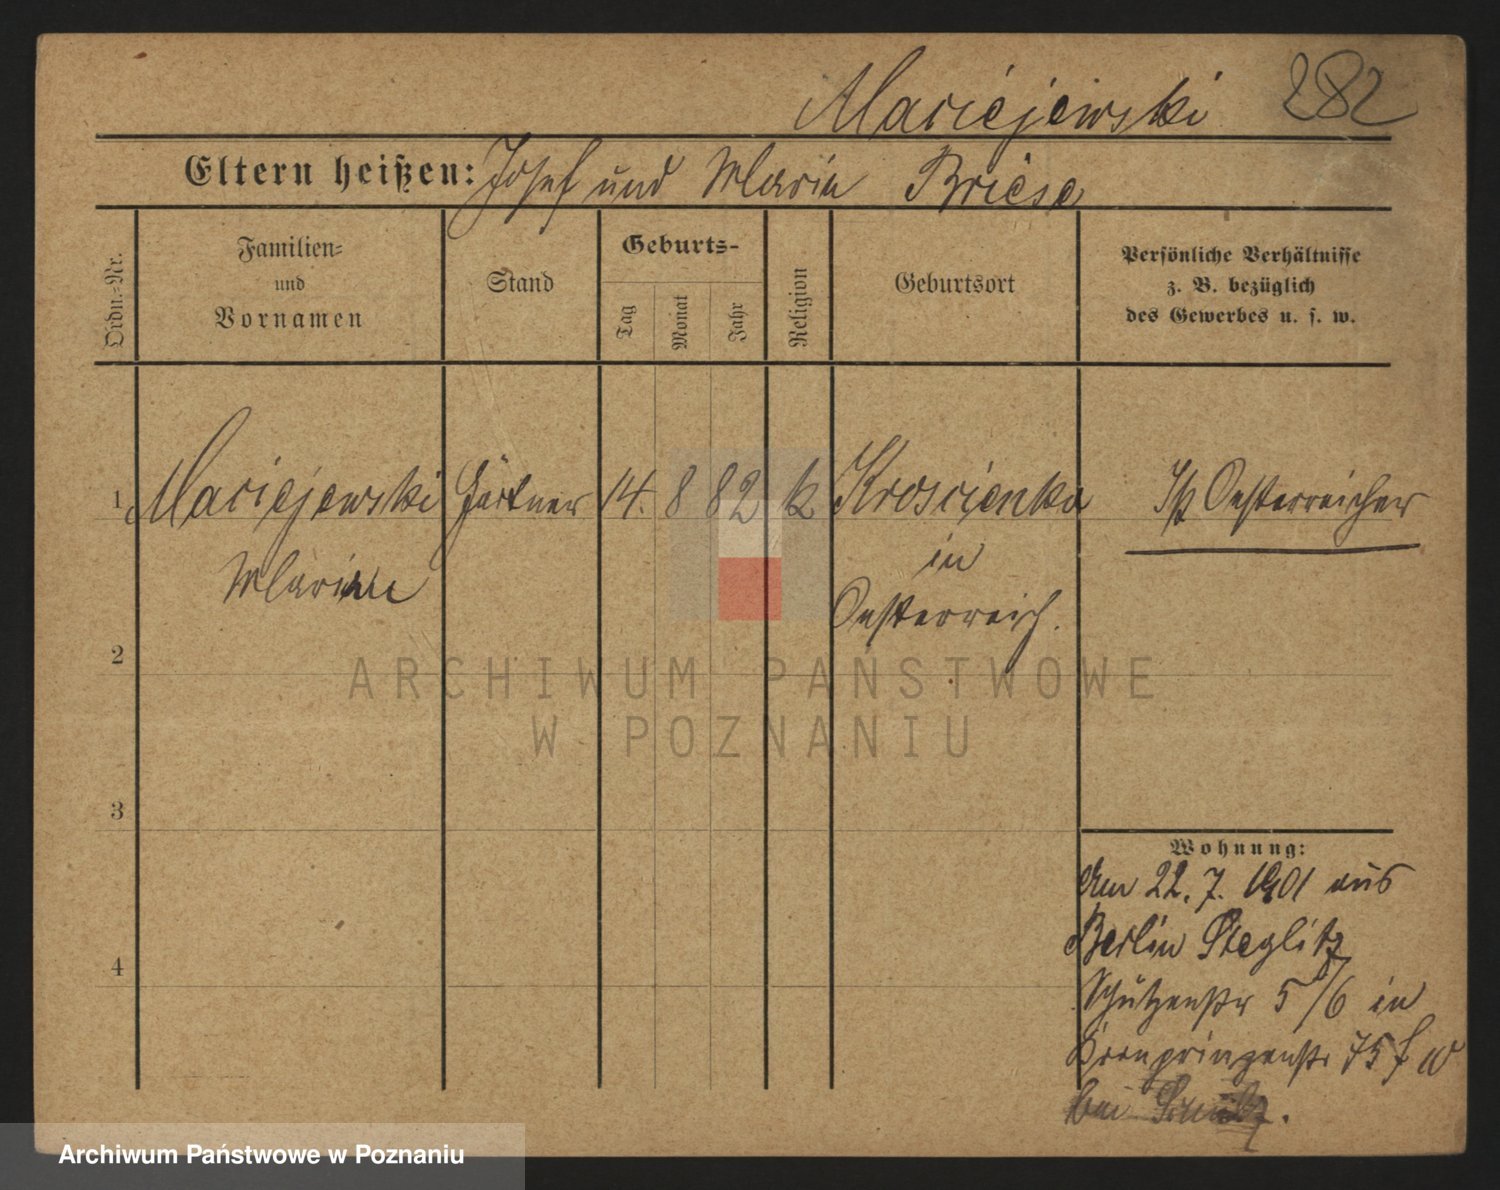 Maciejewski 282
Eltern heißen: Josef und Maria Briese
Ordn.-Nr.
Familien-
und
Vornamen
Stand
Geburts-
Tag
Monat
Jahr
Religion
Geburtsort
Persönliche Verhältnisse
z. B. bezüglich
des Gewerbes u. s. w.
1 Maciejewski Gärtner 14. 8 82 k Kroscienka Ist Oesterreicher
Marian
in
Oesterreich.
2
3
4
Wohnung:
Am 22. 7. 1901 aus
Berlin Steglitz
Schützenstr 5/6 in
Kronprinzenstr 75
bei
ARCHIWUM PAŃSTWOWE
W POZNANIU
Archiwum Państwowe w Poznaniu